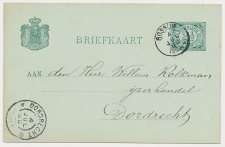 BRIEFKAART
AAN den Heer Willem Kolkman
ijzerhandel
Dordrecht
DORDRECHT
4
JUL